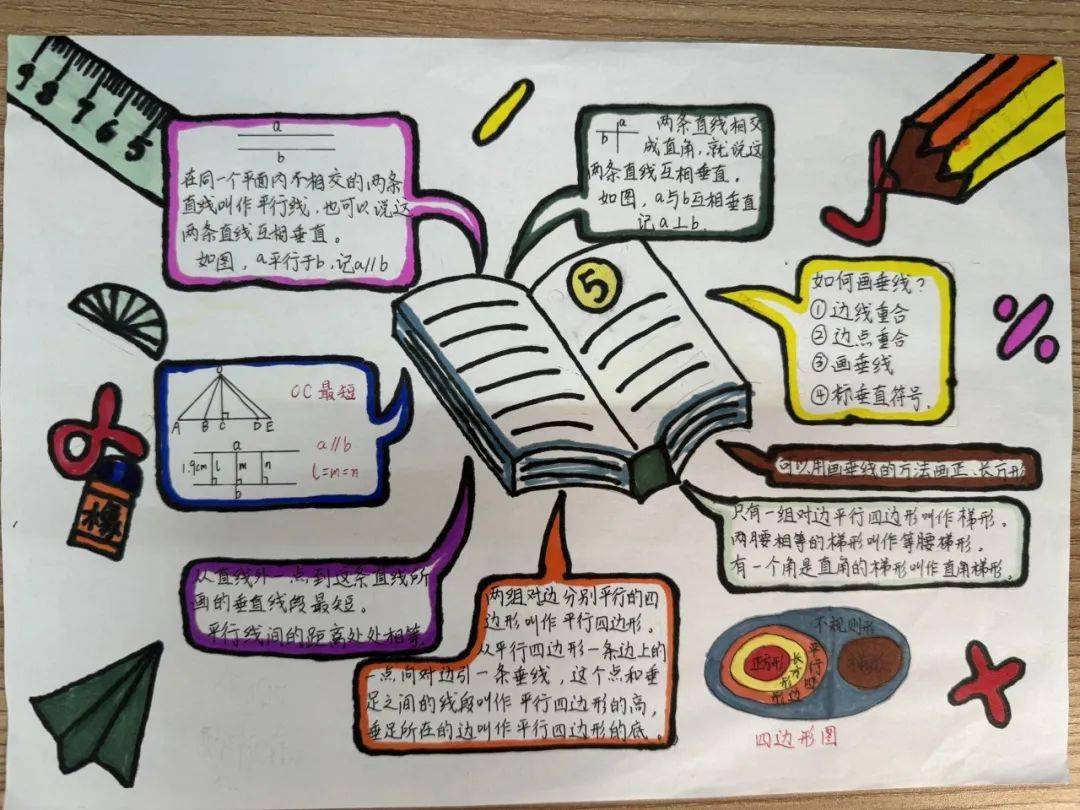 9 8 7 6 5
a
b
在同一个平面内不相交的两条
直线叫作平行线,也可以说这
两条直线互相垂直。
如图,a平行于b,记a∥b
a
b
两条直线相交
成直角,就说这
两条直线互相垂直。
如图,a与b互相垂直
记a⊥b.
5
如何画垂线?
①边线重合
②边点重合
③画垂线
④标垂直符号.
O
A B C D E
OC最短
a
1.9cm l m n
b
a∥b
l=m=n
橡
可以用画垂线的方法画正、长方形
只有一组对边平行四边形叫作梯形。
两腰相等的梯形叫作等腰梯形。
有一个角是直角的梯形叫作直角梯形。
从直线外一点到这条直线所
画的垂直线段最短。
平行线间的距离处处相等.
两组对边分别平行的四
边形叫作平行四边形。
从平行四边形一条边上的
一点向对边引一条垂线,这个点和垂
足之间的线段叫作平行四边形的高,
垂足所在的边叫作平行四边形的底。
不规则形
正方形
长方形
平行四边形
四边形图